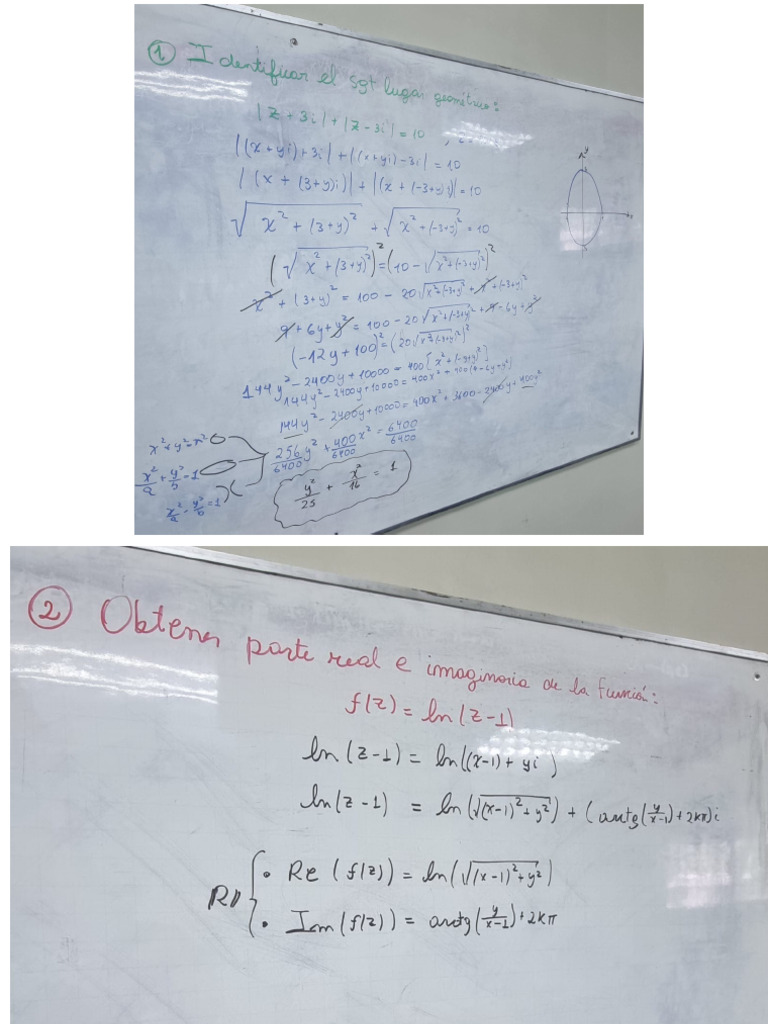 ① Identificar el sgt lugar geométrico:
|z + 3i| + |z - 3i| = 10
|(x + yi) + 3i| + |(x + yi) - 3i| = 10
|(x + (3+y)i)| + |(x + (-3+y)i)| = 10
√(x² + (3+y)²) + √(x² + (-3+y)²) = 10
(√(x² + (3+y)²))² = (10 - √(x² + (-3+y)²))²
x² + (3+y)² = 100 - 20√(x² + (-3+y)²) + x² + (-3+y)²
9 + 6y + y² = 100 - 20√(x² + (-3+y)²) + 9 - 6y + y²
(-12y + 100)² = (20√(x² + (-3+y)²))²
144y² - 2400y + 10000 = 400[x² + (-3+y)²]
144y² - 2400y + 10000 = 400x² + 400(9 - 6y + y²)
144y² - 2400y + 10000 = 400x² + 3600 - 2400y + 400y²
256/6400 y² + 400/6400 x² = 6400/6400
y²/25 + x²/16 = 1
x² + y² = r²
x²/a + y²/b = 1
x²/a - y²/b = 1
y
x
② Obtener parte real e imaginaria de la función:
f(z) = ln(z-1)
ln(z-1) = ln((x-1) + yi)
ln(z-1) = ln(√((x-1)² + y²)) + (arctg(y/(x-1)) + 2kπ)i
• Re(f(z)) = ln(√((x-1)² + y²))
• Im(f(z)) = arctg(y/(x-1)) + 2kπ